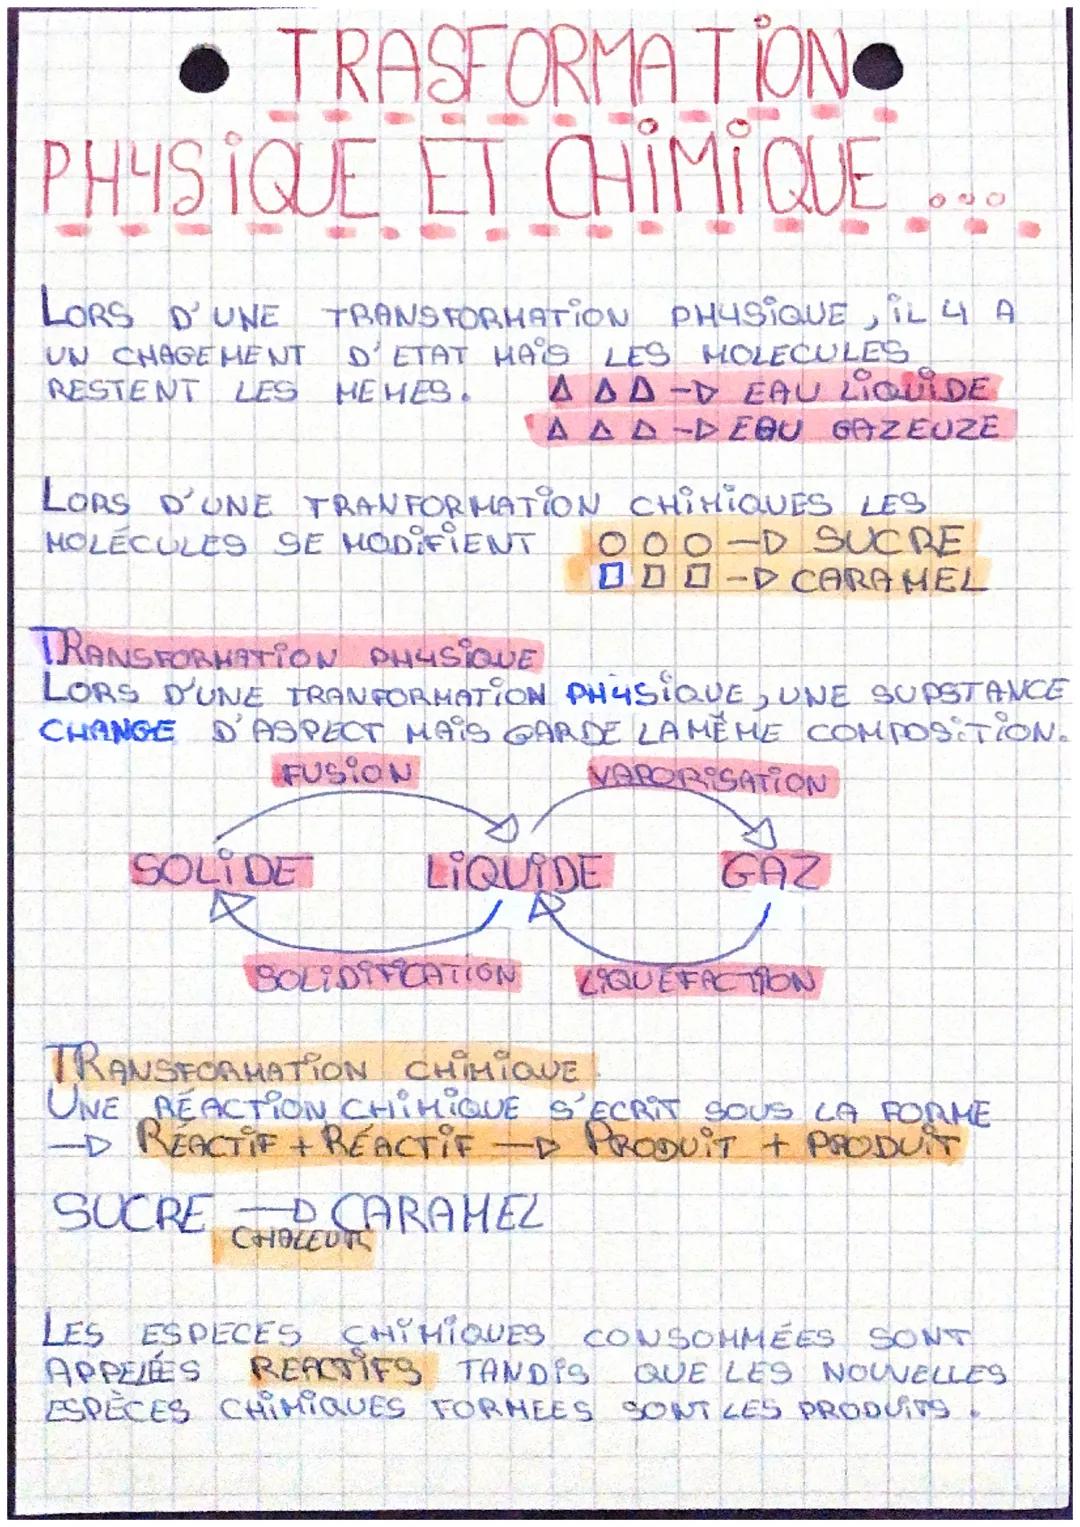 TRASFORMATION
PHYSIQUE ET CHIMIQUE ...
LORS D'UNE TRANSFORMATION PHYSIQUE, IL Y A
UN CHAGEMENT D'ETAT MAIS LES MOLECULES
RESTENT LES MEMES. △ △ △ → EAU LIQUIDE
△ △ △ → EAU GAZEUZE
LORS D'UNE TRANFORMATION CHIMIQUES LES
MOLÉCULES SE MODIFIENT ○ ○ ○ → SUCRE
□ □ □ → CARAMEL
TRANSFORMATION PHYSIQUE
LORS D'UNE TRANFORMATION PHYSIQUE, UNE SUPSTANCE
CHANGE D'ASPECT MAIS GARDE LA MÊME COMPOSITION.
FUSION VAPORISATION
SOLIDE LIQUIDE GAZ
SOLIDIFICATION LIQUEFACTION
TRANSFORMATION CHIMIQUE.
UNE RÉACTION CHIMIQUE S'ECRIT SOUS LA FORME
→ RÉACTIF + RÉACTIF → PRODUIT + PRODUIT
SUCRE → CARAMEL
CHALEUR
LES ESPECES CHIMIQUES CONSOMMÉES SONT
APPELÉES REACTIFS TANDIS QUE LES NOUVELLES
ESPÈCES CHIMIQUES FORMEES SONT LES PRODUITS.